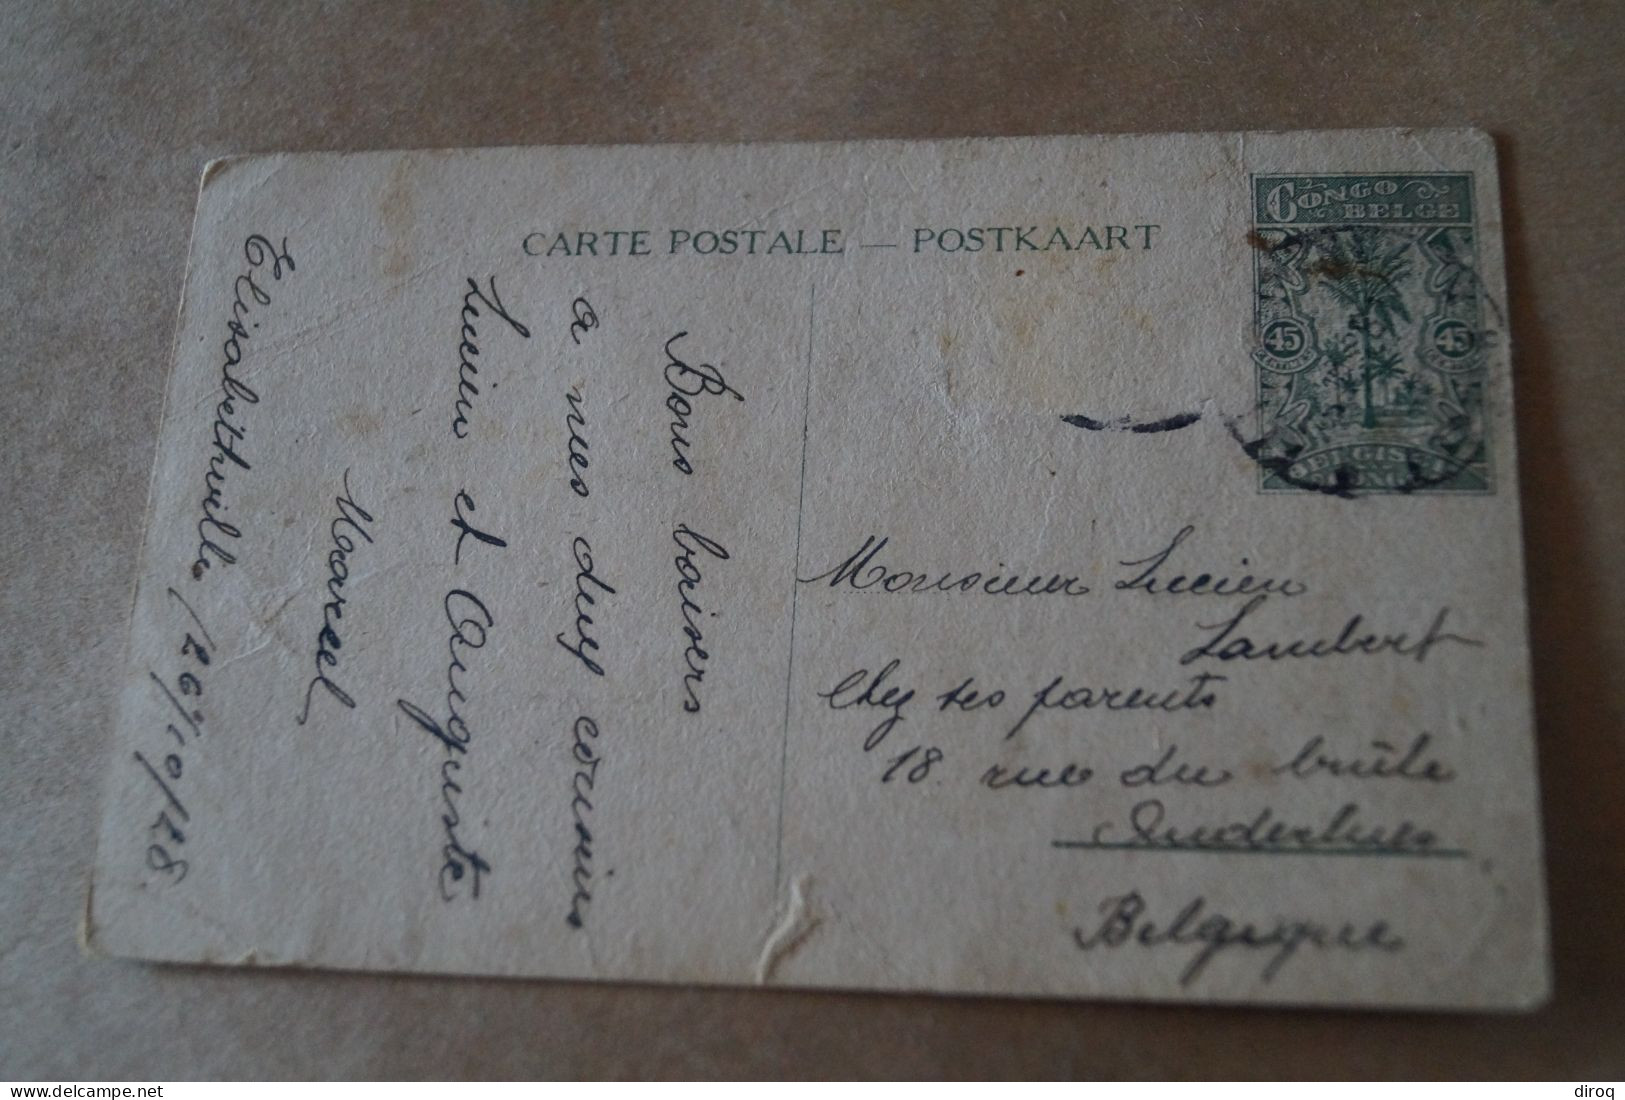 CARTE POSTALE — POSTKAART
CONGO
BELGE
45
45
BELGISCH
CONGO
Bons baisers
a mes duex cousins
Lucien et Auguste
Marcel
Elisabethville, 26/10/28.
Monsieur Lucien
Lambert
Chez ses parents
18. rue du brûle
Anderlues
Belgique
diroq